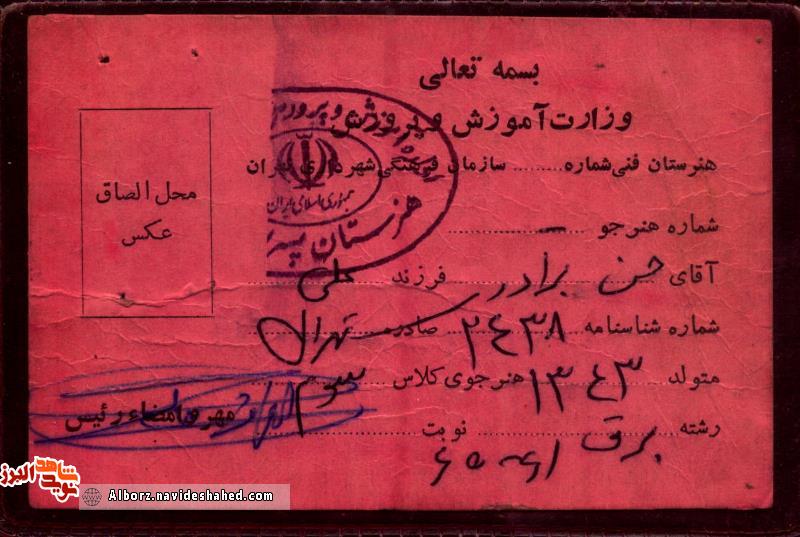 بسمه تعالی
وزارت آموزش و پرورش
هنرستان فنی شماره ......... سازمان فرهنگی شهرداری تهران
شماره هنرجو —
آقای حسن برادر فرزند علی
شماره شناسنامه ۲۴۳۸ صادره تهران
متولد ۱۳۴۳ هنرجوی کلاس سوم
رشته برق نوبت
محل الصاق
عکس
مهر و امضاء رئیس
جمهوری اسلامی ایران
هنرستان
شاهد
نوید
البرز
Alborz.navideshahed.com